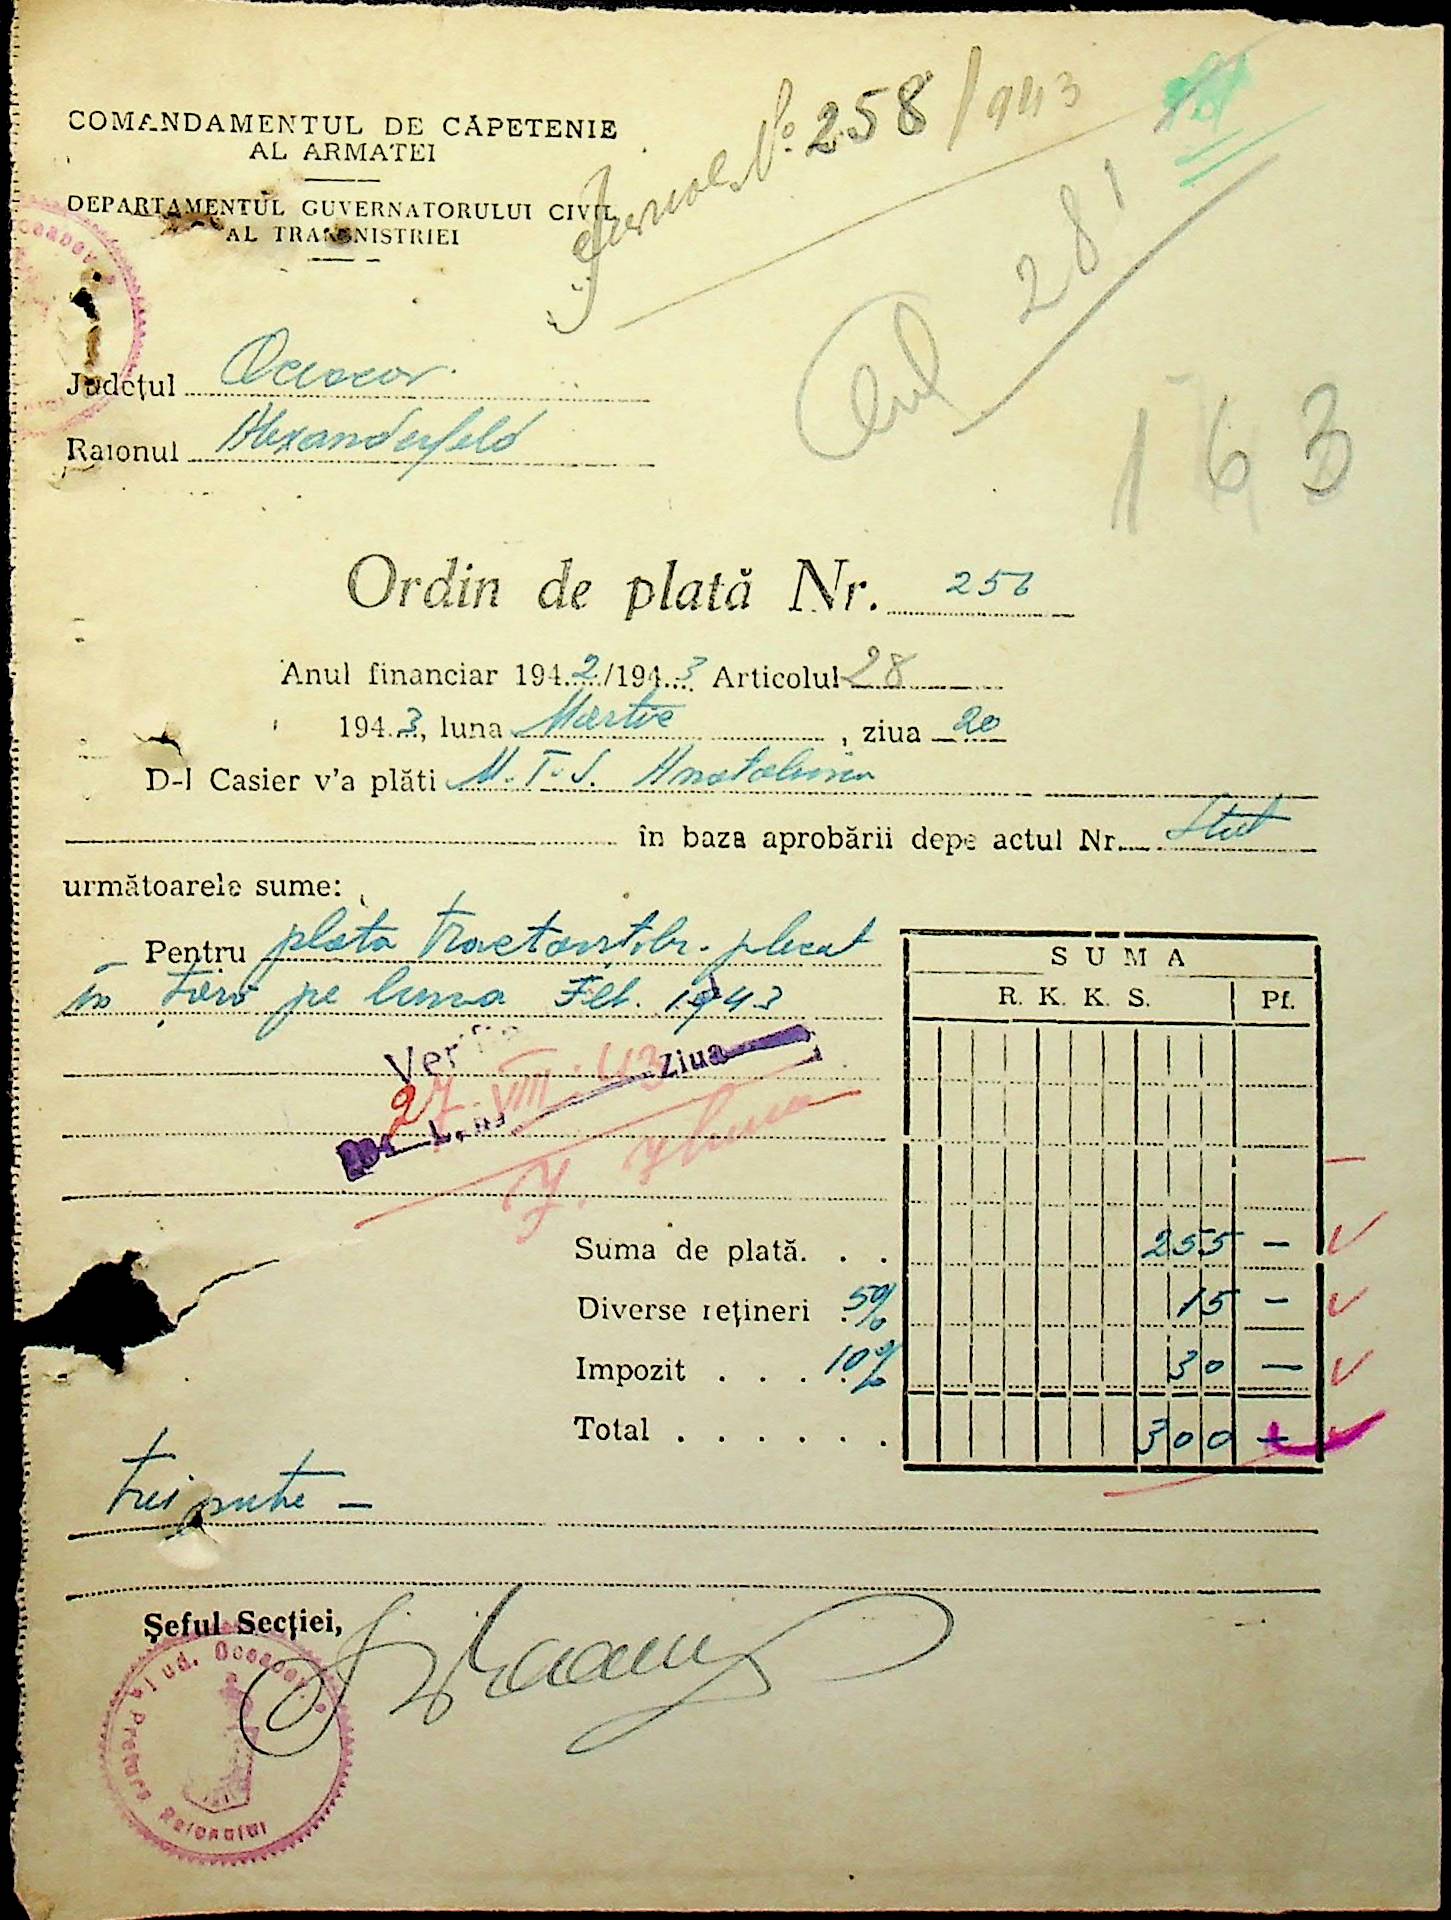 COMANDAMENTUL DE CAPETENIE
AL ARMATEI
Jurnal No. 258/943
281
DEPARTAMENTUL GUVERNATORULUI CIVIL
AL TRANSNISTRIEI
Județul Oceacov
Raionul Alexanderfeld
163
Ordin de plată Nr. 256
Anul financiar 1942/1943 Articolul 28
1943, luna Martie, ziua 20
D-l Casier v'a plăti M.T.S. Anatolievca
în baza aprobării depe actul Nr. Stat
următoarele sume:
Pentru plata tractoristilor plecat
SUMA
în țară pe luna Feb. 1943
R. K. K. S. Pf.
Ziua
27.VIII.43
Suma de plată. . . 255 —
Diverse rețineri . 5% 15 —
Impozit . . . . 10% 30 —
Total . . . . . . . 300 —
trei sute —
Șeful Secției,
Jud. Oceacov
Pretura Raionului